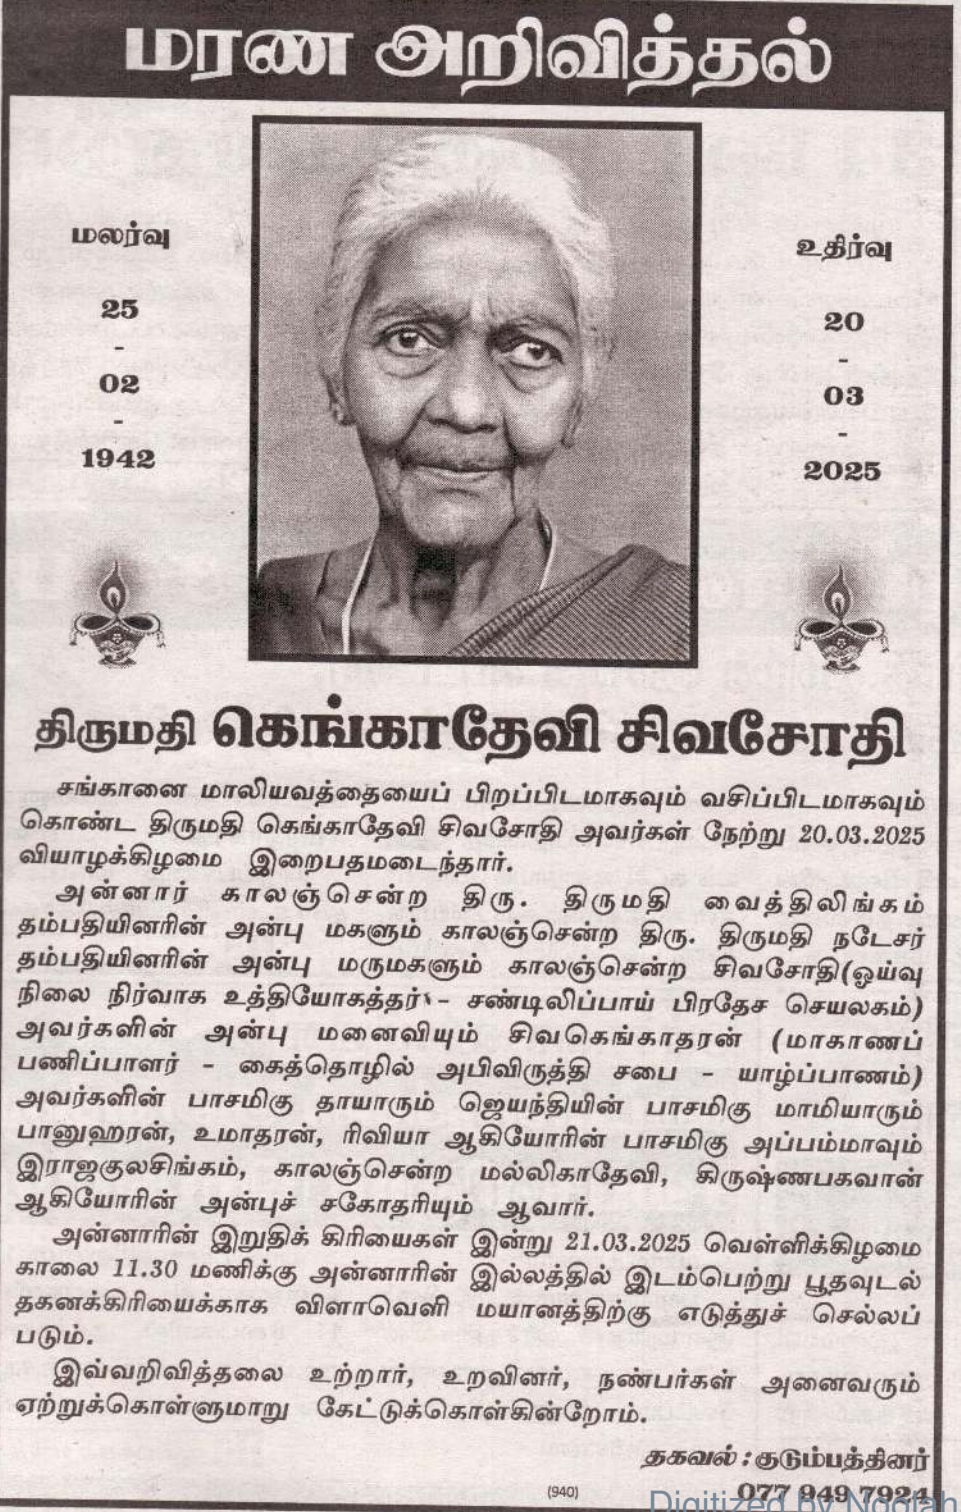 மரண அறிவித்தல்
மலர்வு
25
-
02
-
1942
உதிர்வு
20
-
03
-
2025
திருமதி கெங்காதேவி சிவசோதி
சங்கானை மாலியவத்தையைப் பிறப்பிடமாகவும் வசிப்பிடமாகவும்
கொண்ட திருமதி கெங்காதேவி சிவசோதி அவர்கள் நேற்று 20.03.2025
வியாழக்கிழமை இறைபதமடைந்தார்.
அன்னார் காலஞ்சென்ற திரு. திருமதி வைத்திலிங்கம்
தம்பதியினரின் அன்பு மகளும் காலஞ்சென்ற திரு. திருமதி நடேசர்
தம்பதியினரின் அன்பு மருமகளும் காலஞ்சென்ற சிவசோதி(ஓய்வு
நிலை நிர்வாக உத்தியோகத்தர் - சண்டிலிப்பாய் பிரதேச செயலகம்)
அவர்களின் அன்பு மனைவியும் சிவகெங்காதரன் (மாகாணப்
பணிப்பாளர் - கைத்தொழில் அபிவிருத்தி சபை - யாழ்ப்பாணம்)
அவர்களின் பாசமிகு தாயாரும் ஜெயந்தியின் பாசமிகு மாமியாரும்
பானுஹரன், உமாதரன், ரிவியா ஆகியோரின் பாசமிகு அப்பம்மாவும்
இராஜகுலசிங்கம், காலஞ்சென்ற மல்லிகாதேவி, கிருஷ்ணபகவான்
ஆகியோரின் அன்புச் சகோதரியும் ஆவார்.
அன்னாரின் இறுதிக் கிரியைகள் இன்று 21.03.2025 வெள்ளிக்கிழமை
காலை 11.30 மணிக்கு அன்னாரின் இல்லத்தில் இடம்பெற்று பூதவுடல்
தகனக்கிரியைக்காக விளாவெளி மயானத்திற்கு எடுத்துச் செல்லப்
படும்.
இவ்வறிவித்தலை உற்றார், உறவினர், நண்பர்கள் அனைவரும்
ஏற்றுக்கொள்ளுமாறு கேட்டுக்கொள்கின்றோம்.
தகவல் : குடும்பத்தினர்
(940)
077 949 7924
Digitized by Noolah